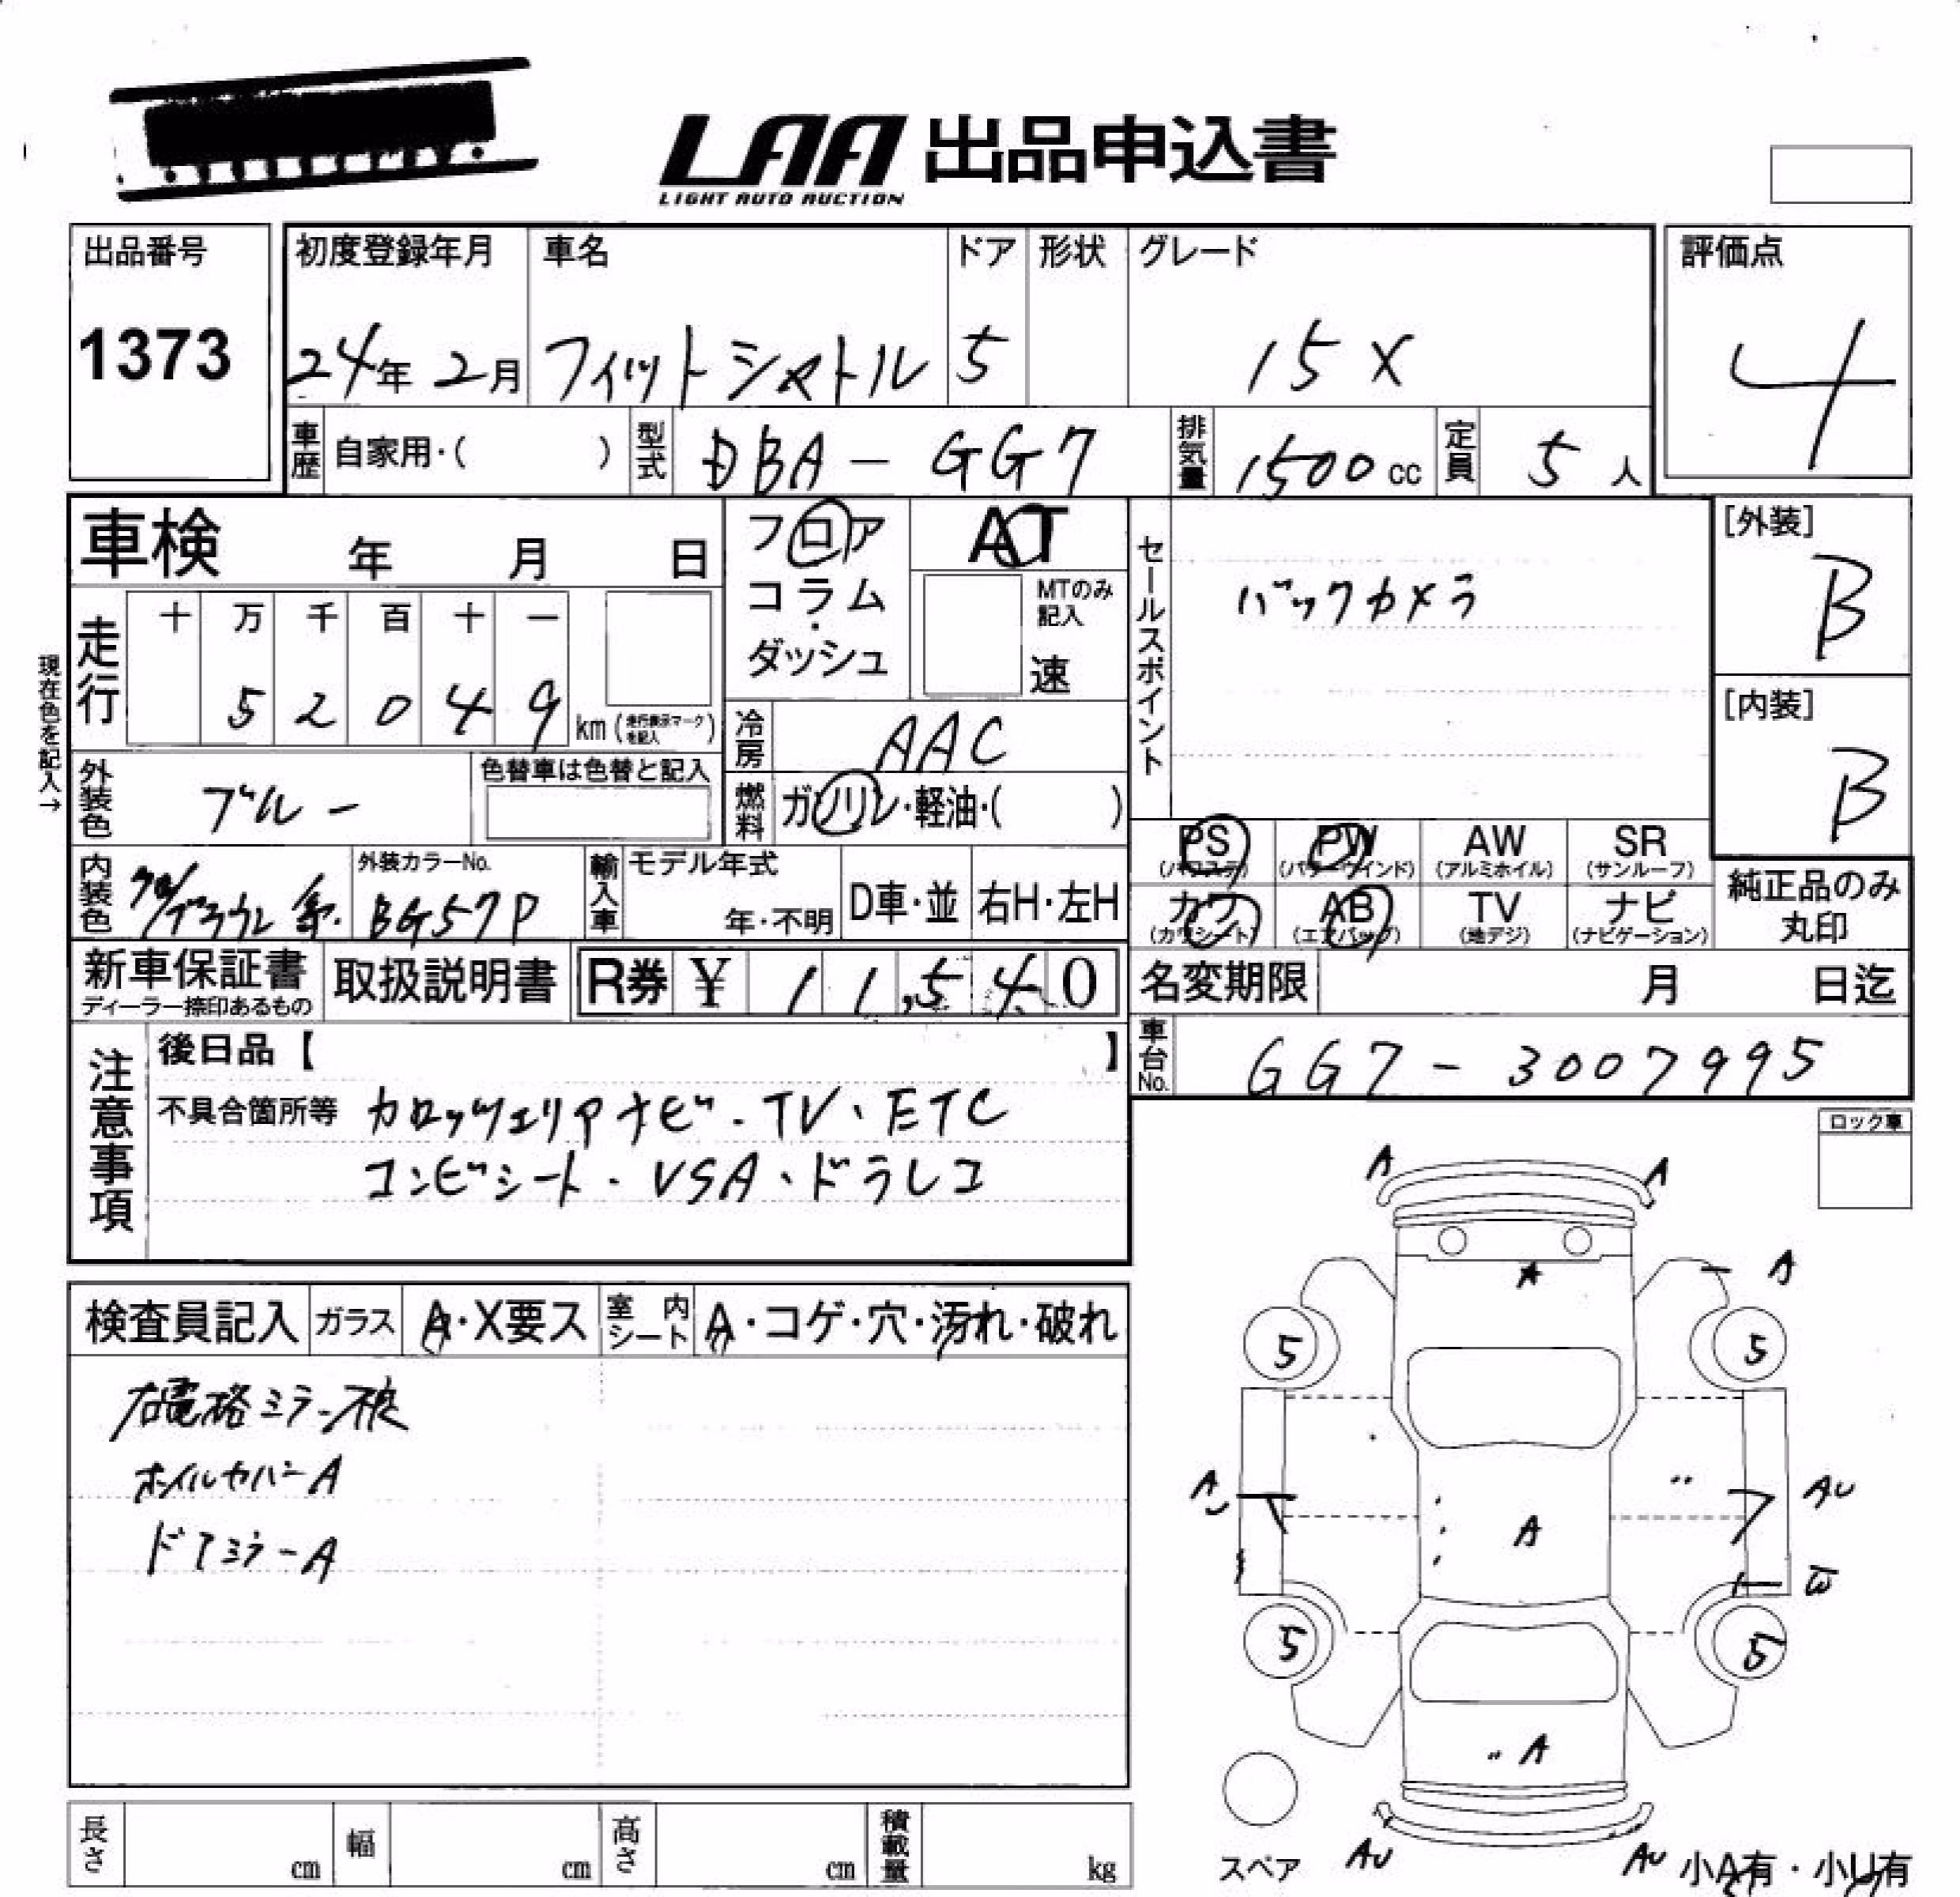 LAA 出品申込書
LIGHT AUTO AUCTION
出品番号
1373
初度登録年月
24年 2月
車名
フィットシャトル
ドア
5
形状
グレード
15X
評価点
4
車歴 自家用・( )
型式 DBA-GG7
排気量 1500cc
定員 5人
車検 年 月 日
フロア
コラム
・
ダッシュ
AT
MTのみ
記入
速
セールスポイント
バックカメラ
[外装]
B
[内装]
B
現在色を記入→
走行
十 万 千 百 十 一
5 2 0 4 9 km (走行表示マークを記入)
冷房 AAC
外装色 ブルー
色替車は色替と記入
燃料 ガソリン・軽油・( )
PS (パワステ) PW (パワーウインド) AW (アルミホイル) SR (サンルーフ)
カワ (カワシート) AB (エアバッグ) TV (地デジ) ナビ (ナビゲーション)
純正品のみ
丸印
内装色 クロ/ブラウン系
外装カラーNo.
BG57P
輸入車
モデル年式
年・不明
D車・並
右H・左H
新車保証書
ディーラー捺印あるもの
取扱説明書
R券 ¥ 11,540
名変期限 月 日迄
車台No. GG7-3007995
注意事項
後日品【 】
不具合箇所等 カロッツェリアナビ・TV、ETC
コンビシート・VSA、ドラレコ
ロック車
検査員記入 ガラス A・X要ス 室内シート A・コゲ・穴・汚れ・破れ
右電格ミラー不良
ホイルカバーA
ドアミラーA
A A
A
5 5
A AU
A
W
5 5
A
スペア
AU AU
小A有・小U有
長さ cm 幅 cm 高さ cm 積載量 kg